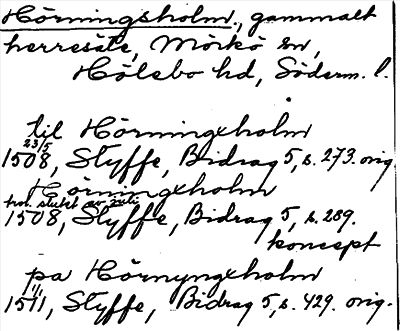 Hörningsholm., gammalt
herresäte, Mörkö sn,
Hölebo hd, Söderm. l.
til Hörningxholm
23/5
1508, Styffe, Bidrag 5, s. 273. orig.
Hörningxholm
hos. slutet av juli
1508, Styffe, Bidrag 5, s. 289.
koncept
pa Hörnyngxholm
1/1
1511, Styffe, Bidrag 5, s. 429. orig.